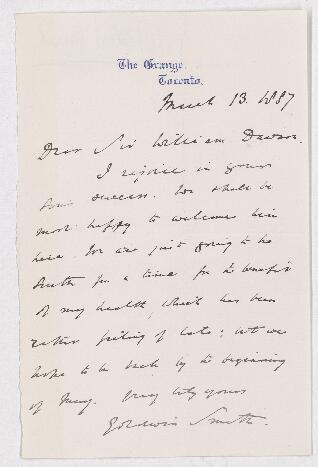 The Grange,
Toronto.
March 13. 1887
Dear Sir William Dawson.
I rejoice in your
son's success. We shall be
most happy to welcome him
here. We are just going to the
South for a time for the benefit
of my health, which has been
rather failing of late; but we
hope to be back by the beginning
of May. Very truly yours
Goldwin Smith.